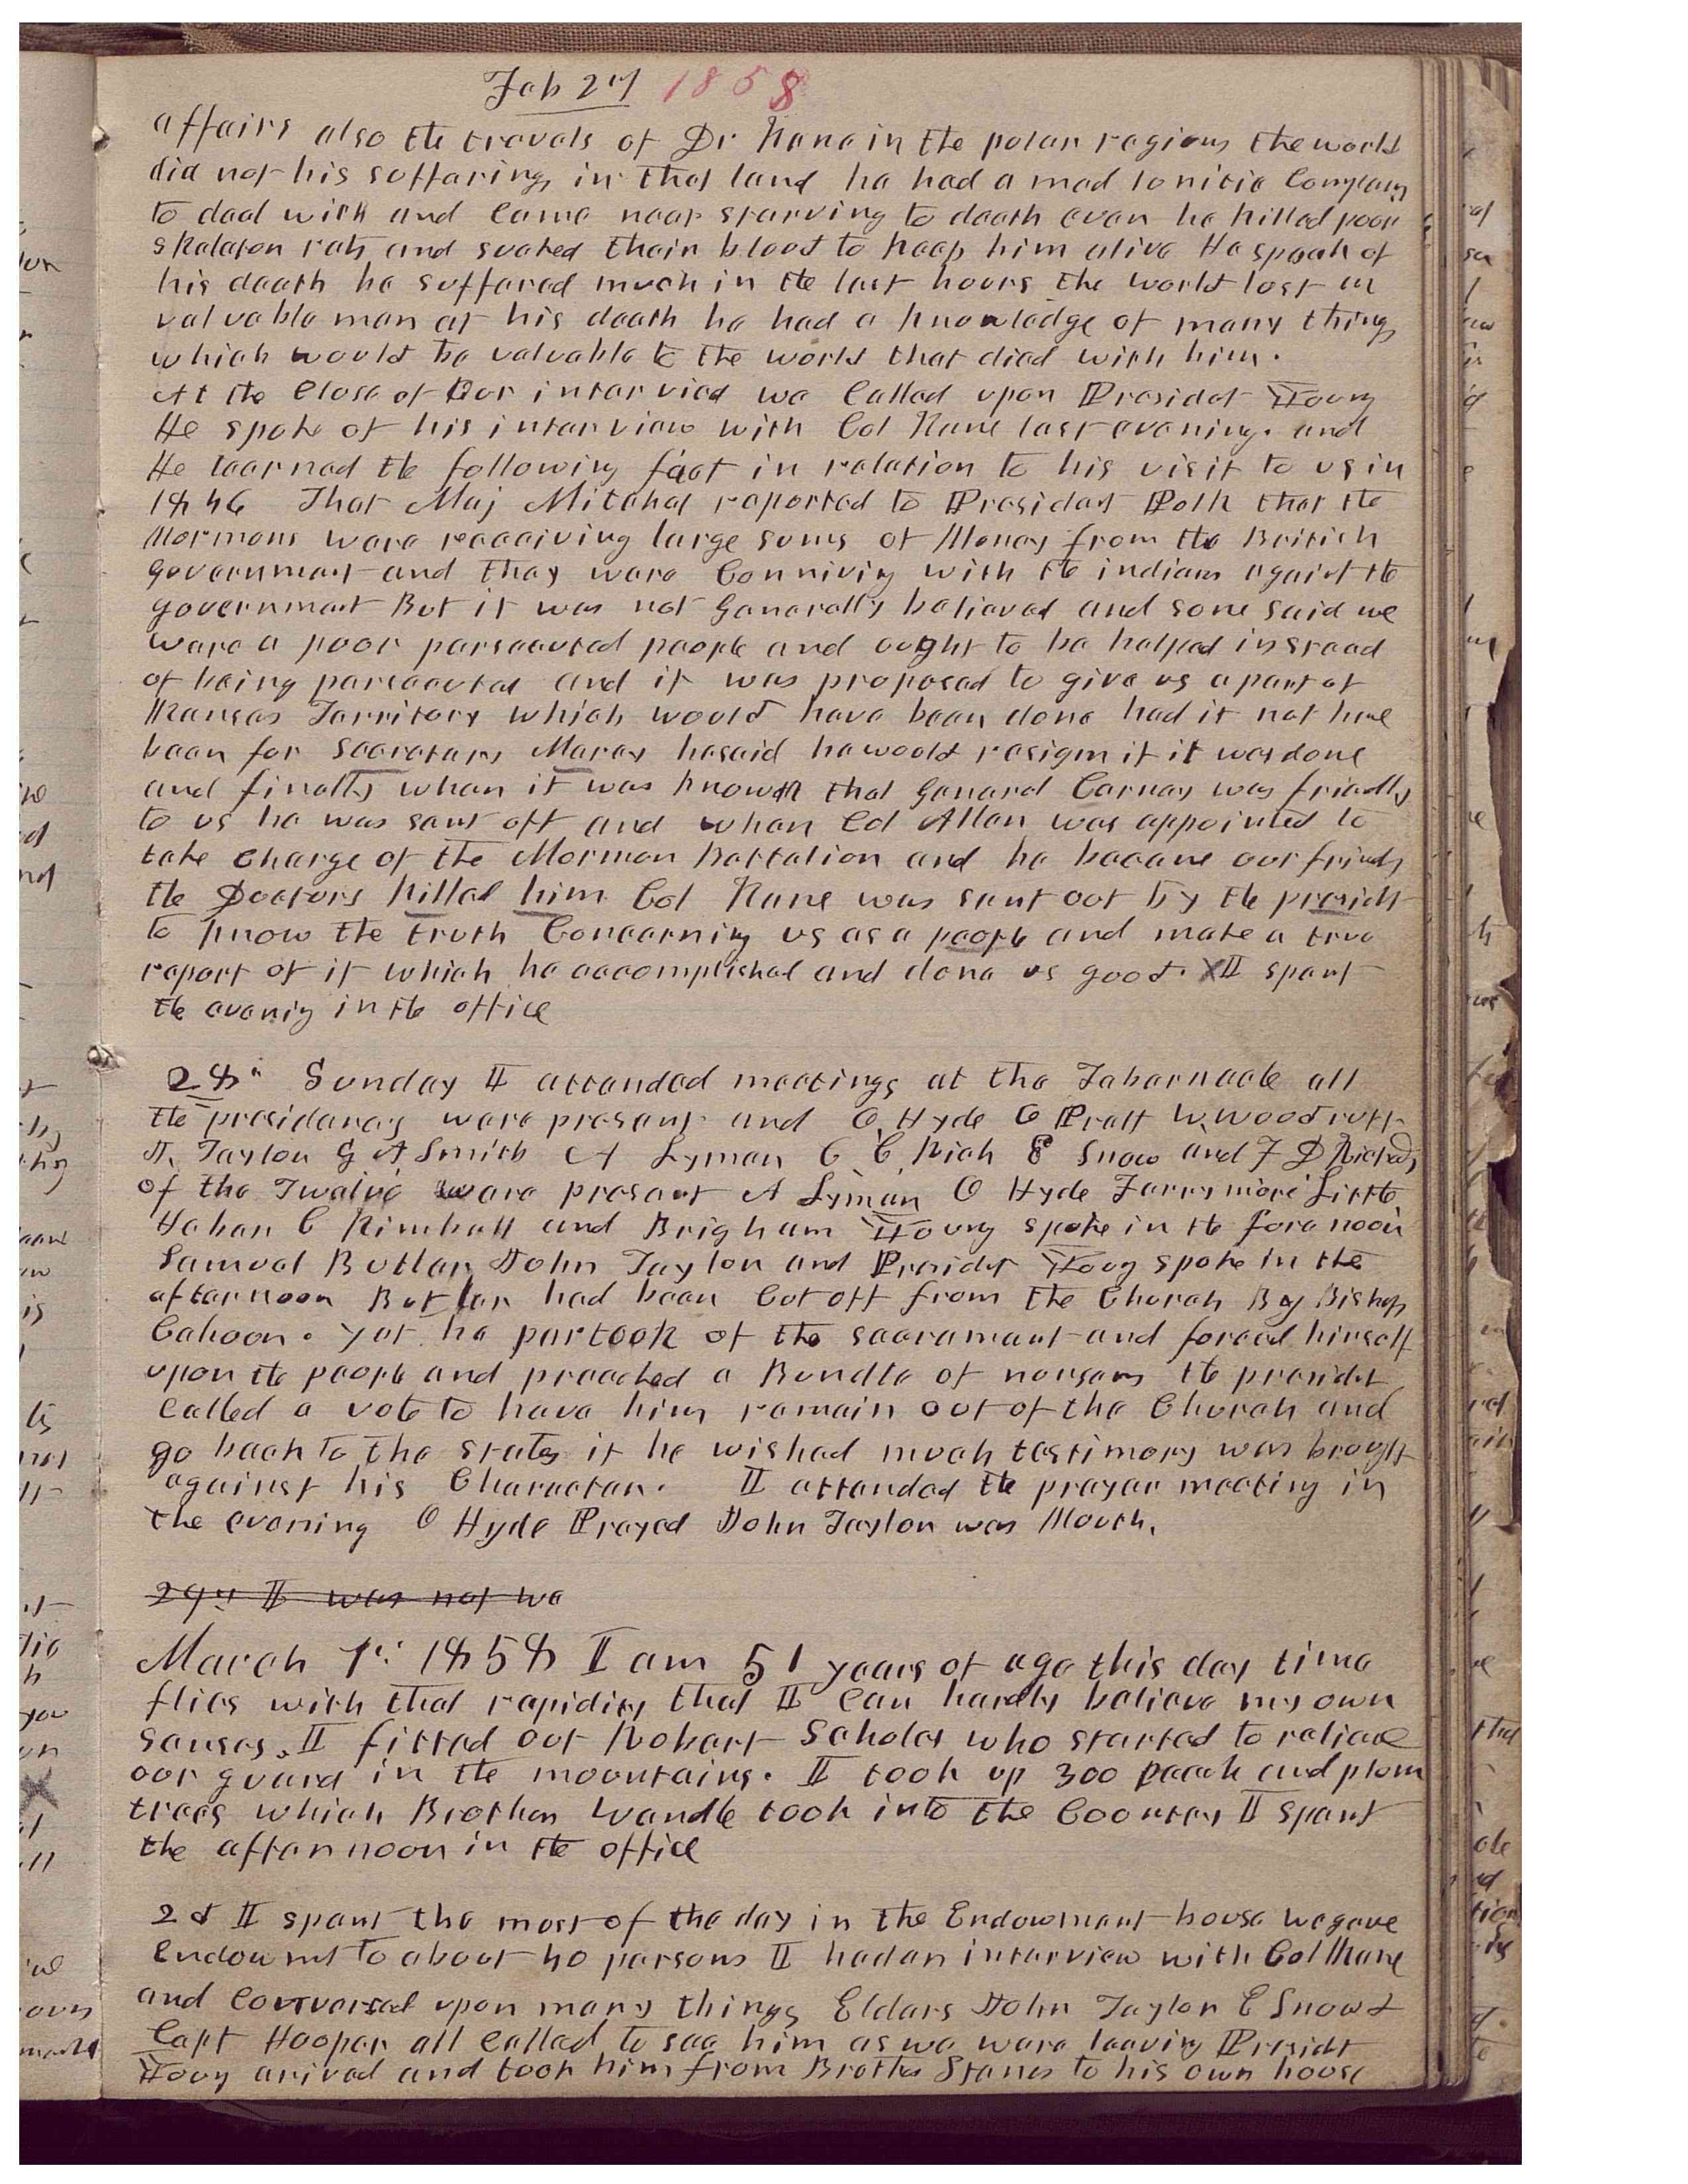 Feb 27 1858
affairs also the travels of Dr Kane in the polar regions the world
did not his suffering in that land he had a mad Company
to deal with and Came near starving to death even he killed poor
skeleton rats and sucked their blood to keep him alive He speak of
his death he suffered much in the last hours the world lost an
valuable man at his death he had a knowledge of many things
which would be valuable to the world that died with him.
At the Close of Our interview we Called upon Presidet Young
He spoke of his interview with Col Kane last evening. and
He learned the following fact in relation to his visit to us in
1846 That Maj Mitchel reported to President Polk that the
Mormons were receeiving large sums of Money from the British
government and they were Conniving with the indians against the
government But it was not Generally believed and some said we
were a poor persecuted people and ought to be helped instead
of being persecuted and it was proposed to give us a part of
Kansas Territory which would have been done had it not have
been for Secretary Marcy he said he would resign if it was done
and finally when it was known that General Carney was friendly
to us he was sent off and when Col Allen was appointed to
take charge of the Mormon Battalion and he became our friends
the Doctors killed him Col Kane was sent out by the presidt
to know the truth Concerning us as a people and make a true
report of it which he accomplished and done us good. X I spent
the evenig in the office
28th Sunday I attended meetings at the Tabernacle all
the presidency were present and O. Hyde O Pratt W. Woodruff
J. Taylor G A Smith A Lyman C. C. Rich E Snow and F D Richards
of the Twelve were present A Lyman O Hyde Farrymore Little
Heber C Kimball and Brigham Young spoke in the forenoon
Samuel Butler, John Taylor and Presidet Young spoke in the
afternoon Butler had been Cut off from the Church By Bishop
Cahoon. yet he partook of the sacrament and forced himself
upon the people and preached a Bundle of nonsens the presidet
Called a vote to have him remain out of the Church and
go back to the states if he wished much testimony was brought
against his Character. I attended the prayer meeting in
the evening O Hyde Prayed John Taylor was Mouth.
29th I was not we
March 1st 1858 I am 51 years of age this day time
flies with that rapidity that I Can hardly believe my own
senses. I fitted out Robert Scholes who started to relieve
our guard in the mountains. I took up 300 peach and plum
trees which Brother Wandle took into the Country I spent
the afternoon in the office
2d I spent the most of the day in the Endowment house we gave
Endowmt to about 40 persons I had an interview with Col Kane
and Conversed upon many things Elders John Taylor E Snow &
Capt Hooper all Called to see him as we were leaving Presidt
Young arived and took him from Brother Stanes to his own house